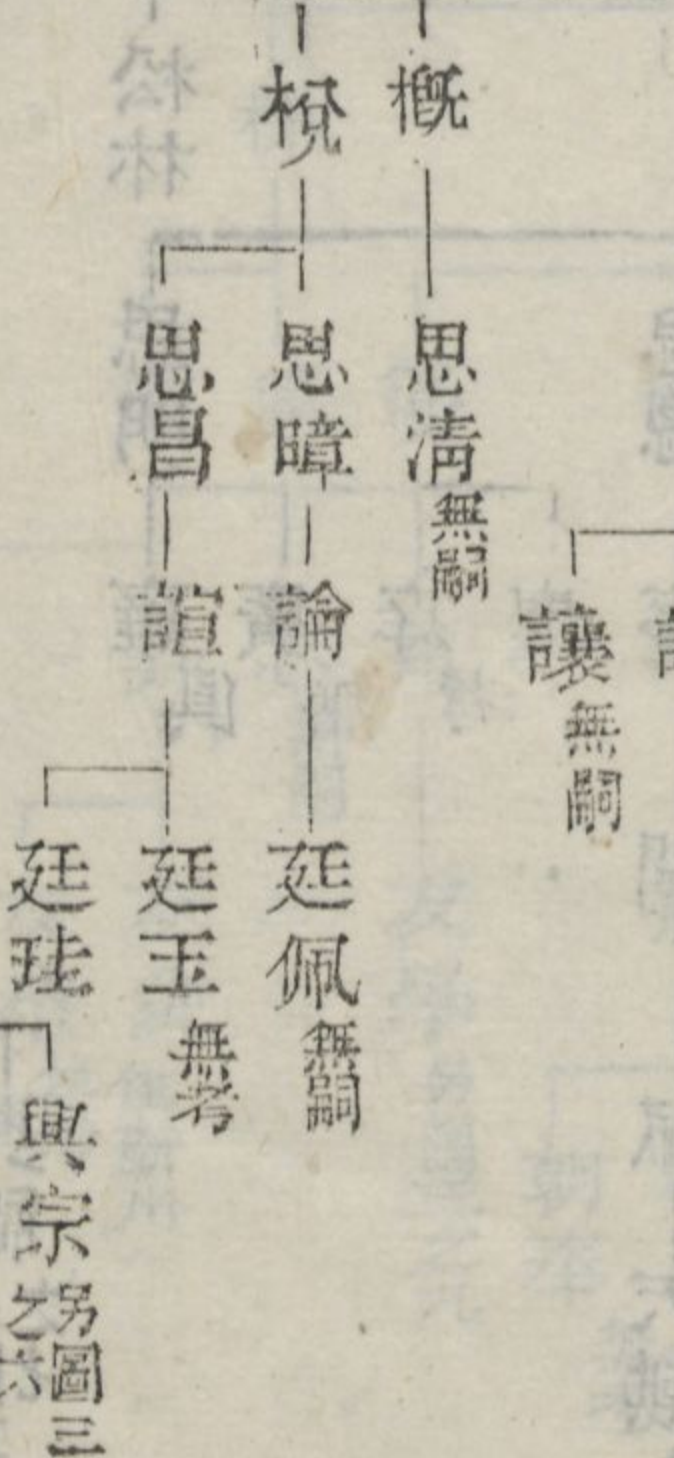 讓無嗣
槪
思淸無嗣
棁
思暲
論
廷佩無嗣
思昌
誼
廷玉無考
廷珪
興宗另圖三
之六